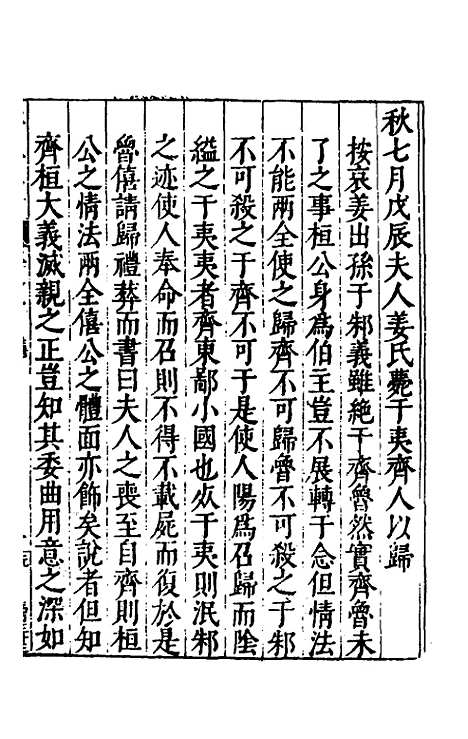 秋七月戊辰夫人姜氏薨于夷齊人以歸
按哀姜出孫于邾義雖絶于齊魯然實齊魯未
了之事桓公身爲伯主豈不展轉于念但情法
不能兩全使之歸齊不可歸魯不可殺之于邾
不可殺之于齊不可于是使人陽爲召歸而隂
縊之于夷夷者齊東鄙小國也㱔于夷則泯邾
之迹使人奉命而召則不得不載屍而復於是
魯僖請歸禮葬而書曰夫人之喪至自齊則桓
公之情法兩全僖公之體面亦飾矣說者但知
齊桓大義滅親之正豈知其委曲用意之深如